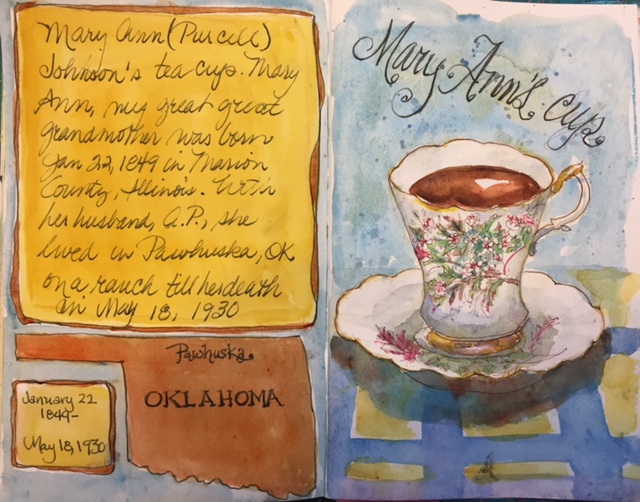 Mary Ann (Purcell)
Johnson's tea cup. Mary
Ann, my great great
grandmother was born
Jan 22, 1849 in Marion
County, Illinois. With
her husband, A.P., she
lived in Pawhuska, OK
on a ranch till her death
in May 18, 1930
Pawhuska
OKLAHOMA
January 22
1849-
May 18, 1930
Mary Ann's cup